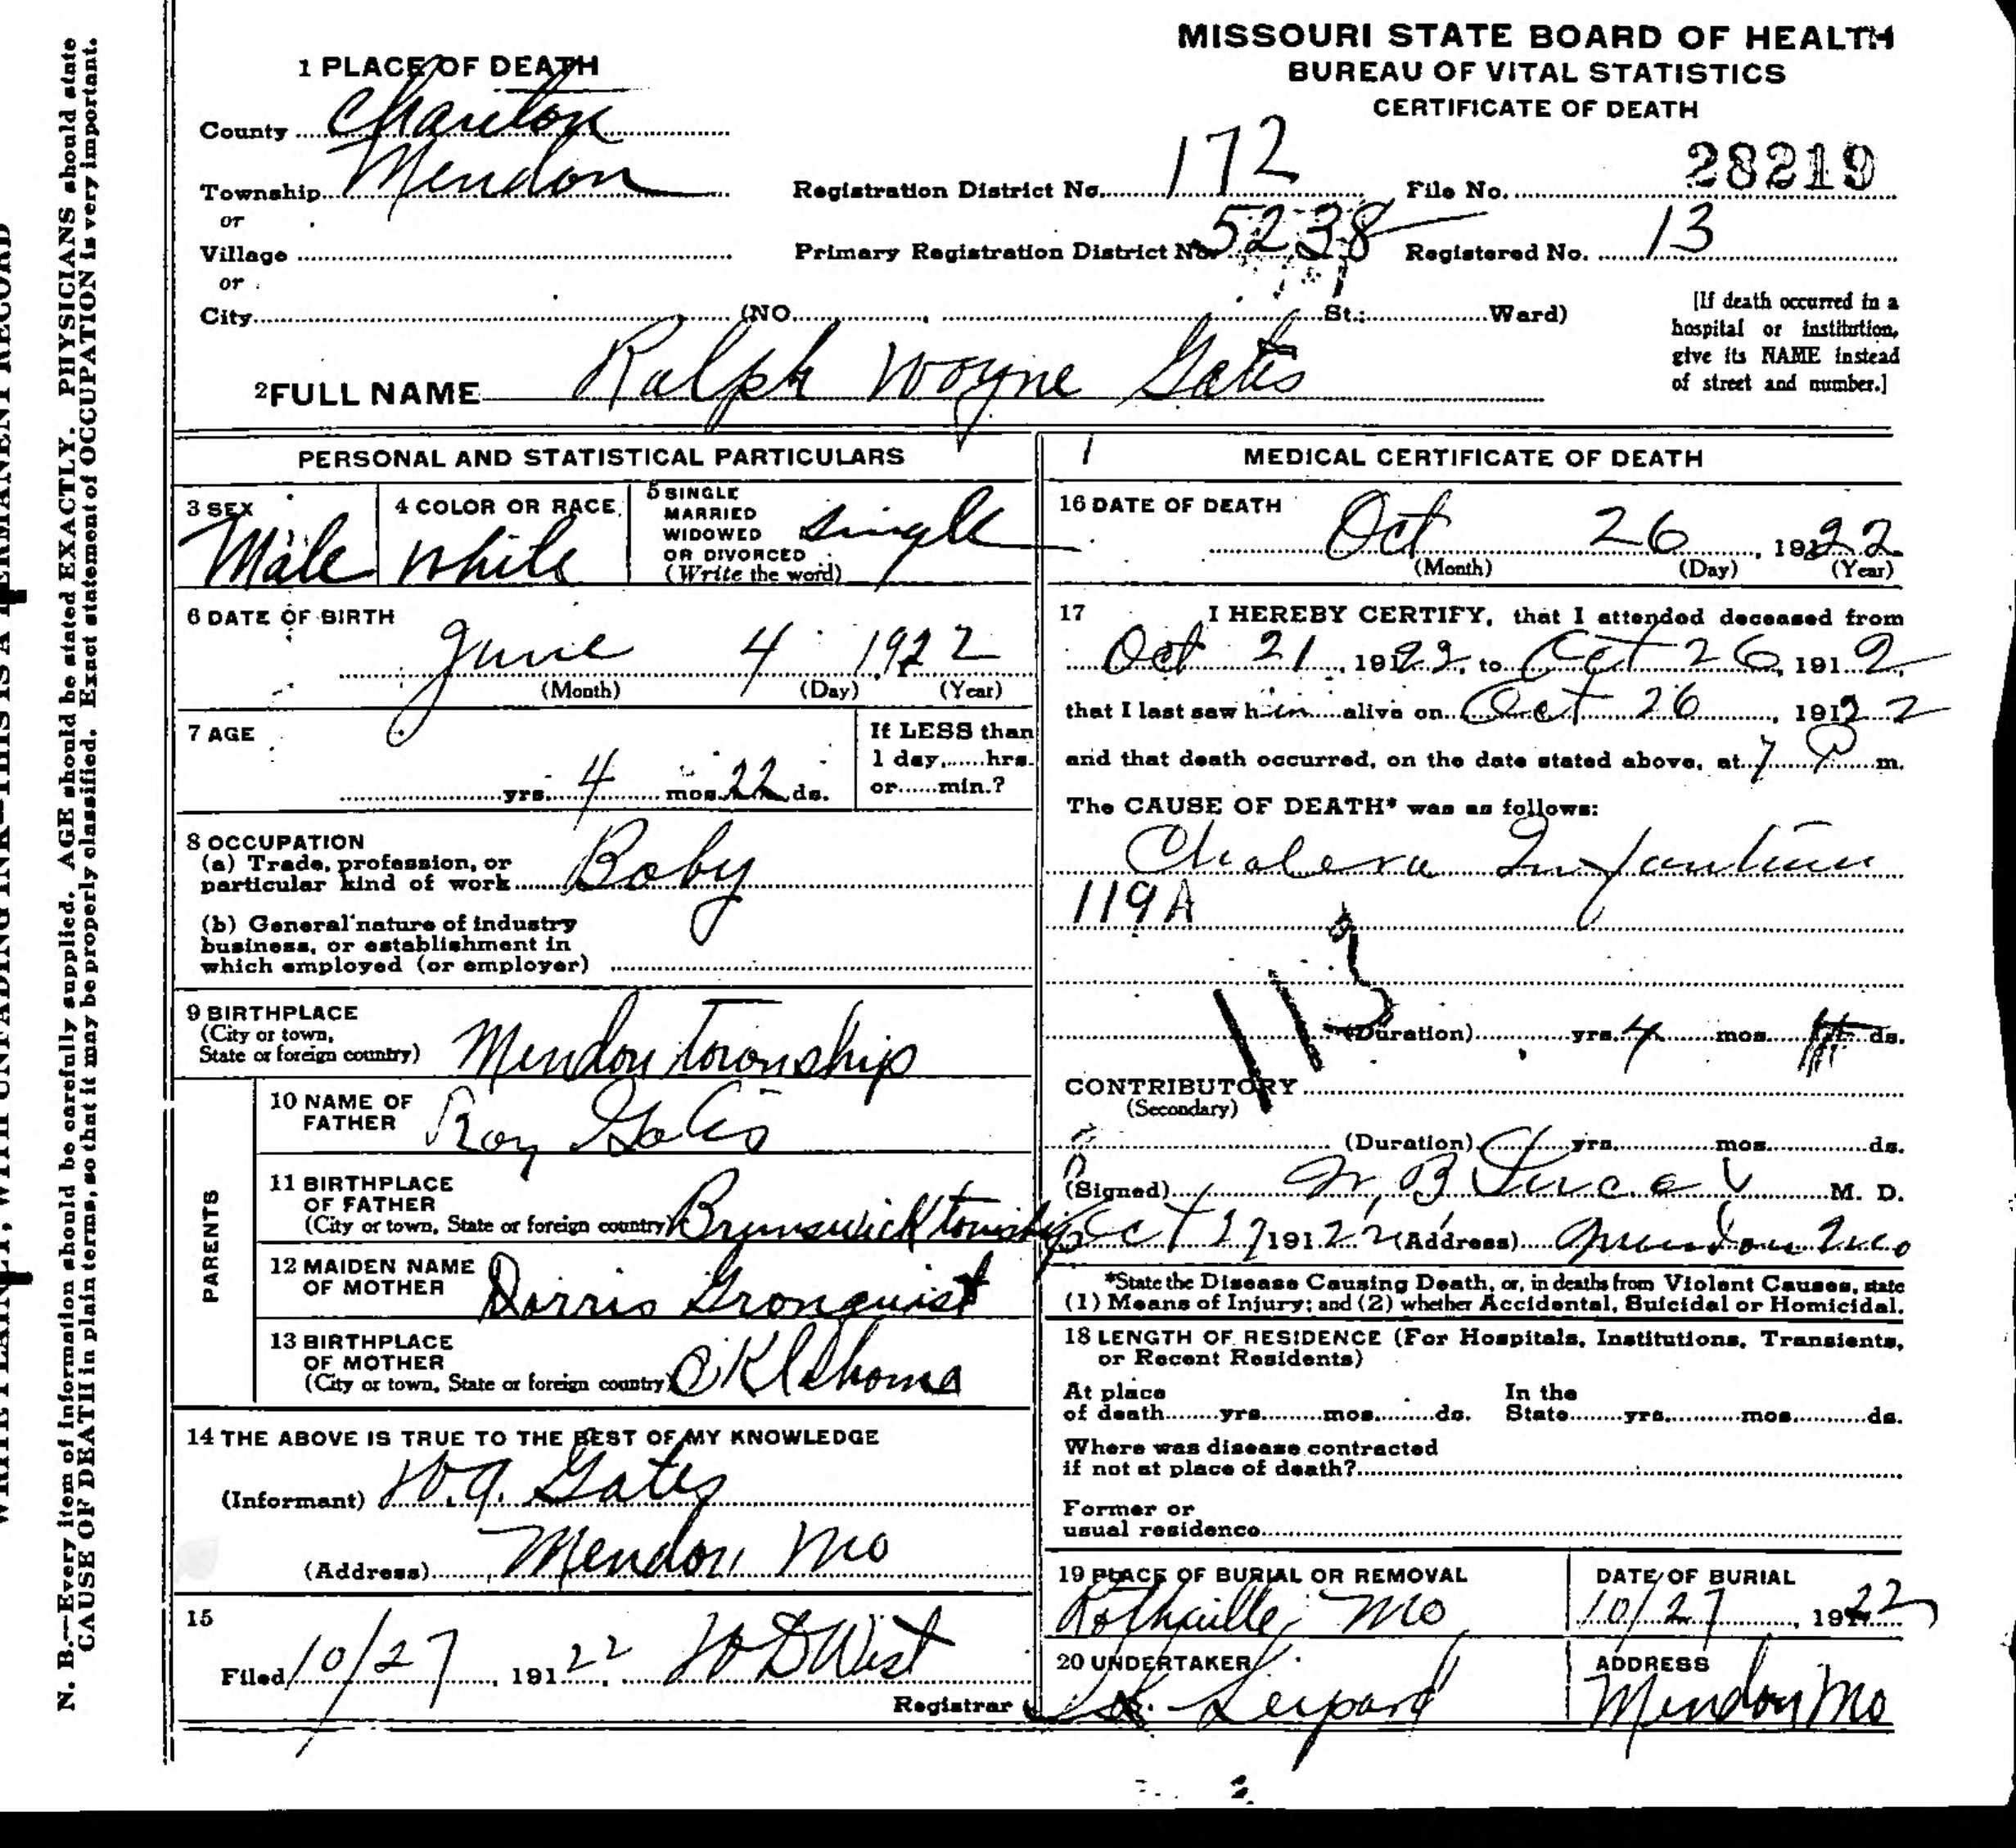 MISSOURI STATE BOARD OF HEALTH
BUREAU OF VITAL STATISTICS
CERTIFICATE OF DEATH
1 PLACE OF DEATH
County Chariton
Township Mendon
or
Village
or
City (NO. St.; Ward)
Registration District No. 172 File No. 28219
Primary Registration District No. 5238 Registered No. 13
[If death occurred in a
hospital or institution,
give its NAME instead
of street and number.]
2 FULL NAME Ralph Wayne Gates
PERSONAL AND STATISTICAL PARTICULARS
3 SEX
Male
4 COLOR OR RACE
White
5 SINGLE
MARRIED
WIDOWED
OR DIVORCED
(Write the word)
Single
6 DATE OF BIRTH
June 4 1922
(Month) (Day) (Year)
7 AGE
yrs. 4 mos. 22 ds.
If LESS than
1 day, hrs.
or min.?
8 OCCUPATION
(a) Trade, profession, or
particular kind of work Baby
(b) General nature of industry
business, or establishment in
which employed (or employer)
9 BIRTHPLACE
(City or town,
State or foreign country) Mendon township
PARENTS
10 NAME OF
FATHER Roy Gates
11 BIRTHPLACE
OF FATHER
(City or town, State or foreign country) Brunswick township
12 MAIDEN NAME
OF MOTHER Dorris Gronquist
13 BIRTHPLACE
OF MOTHER
(City or town, State or foreign country) Oklahoma
14 THE ABOVE IS TRUE TO THE BEST OF MY KNOWLEDGE
(Informant) Gates
(Address) Mendon Mo
15
Filed 10/27, 191 22, West
Registrar
1 MEDICAL CERTIFICATE OF DEATH
16 DATE OF DEATH
Oct 26, 1922
(Month) (Day) (Year)
17 I HEREBY CERTIFY, that I attended deceased from
Oct 21, 191 22, to Oct 26, 191 2,
that I last saw him alive on Oct 26, 191 22
and that death occurred, on the date stated above, at 7 P m.
The CAUSE OF DEATH* was as follows:
Cholera Infantum
119A
113
(Duration) yrs. 4 mos. ds.
CONTRIBUTORY
(Secondary)
(Duration) yrs. mos. ds.
(Signed) B Lucas M. D.
Oct 27 191 22 (Address) Mendon Mo
*State the Disease Causing Death, or, in deaths from Violent Causes, state
(1) Means of Injury; and (2) whether Accidental, Suicidal or Homicidal.
18 LENGTH OF RESIDENCE (For Hospitals, Institutions, Transients,
or Recent Residents)
At place In the
of death yrs. mos. ds. State yrs. mos. ds.
Where was disease contracted
if not at place of death?
Former or
usual residence
19 PLACE OF BURIAL OR REMOVAL
Rothville, Mo
DATE OF BURIAL
10/27, 1922
20 UNDERTAKER
Leipard
ADDRESS
Mendon Mo
N. B.—Every item of information should be carefully supplied. AGE should be stated EXACTLY. PHYSICIANS should state
CAUSE OF DEATH in plain terms, so that it may be properly classified. Exact statement of OCCUPATION is very important.